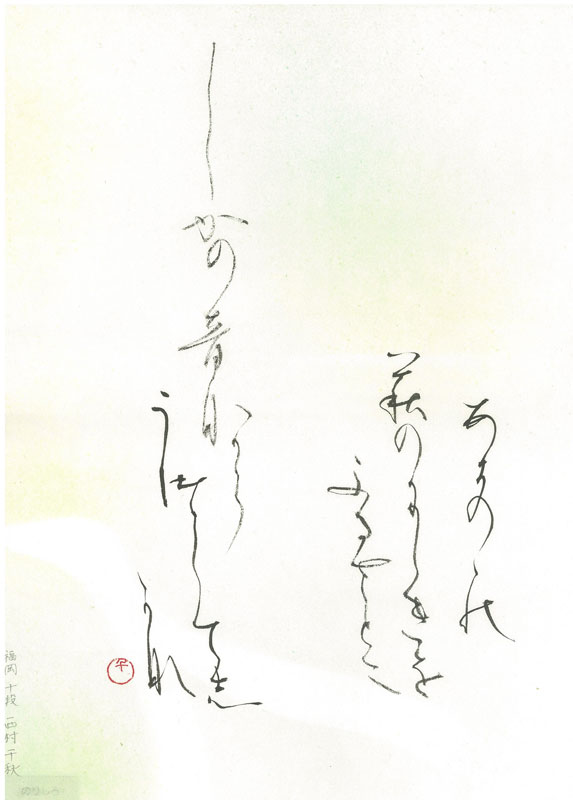 あきのゝ能
萩のにしきを
ふるさとに
しかの音
ながら
うつして志
かな
福岡 十段 西村 千秋